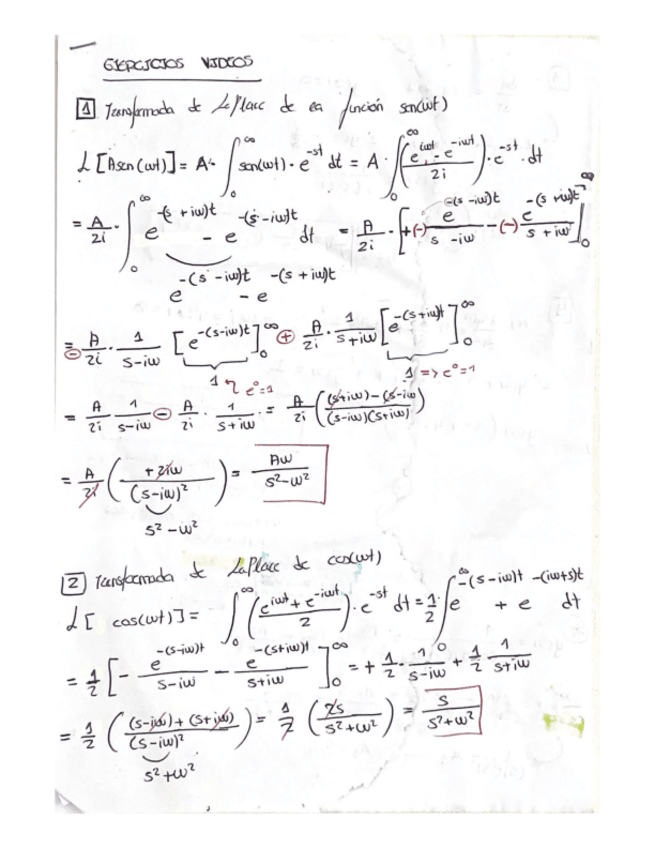 EJERCICIOS VIDEOS
1 Transformada de LaPlace de la función sen(wt)
L[Asen(wt)] = A· ∫₀^∞ sen(wt)·e^-st dt = A· ∫₀^∞ (e^iwt - e^-iwt / 2i)·e^-st·dt
= A/2i · ∫₀^∞ e^-(s+iw)t - e^-(s-iw)t dt = A/2i · [+(-) e^-(s-iw)t / s-iw -(-) e^-(s+iw)t / s+iw]₀^∞
e^-(s-iw)t - e^-(s+iw)t
= - A/2i · 1/s-iw [e^-(s-iw)t]₀^∞ + A/2i · 1/s+iw [e^-(s+iw)t]₀^∞
1 e⁰=1 1 => e⁰=1
= A/2i · 1/s-iw - A/2i · 1/s+iw = A/2i ((s+iw)-(s-iw) / (s-iw)(s+iw))
= A/2i (+2iw / (s-iw)²) = Aw / s²-w²
s²-w²
2 Transformada de LaPlace de cos(wt)
L[cos(wt)] = ∫₀^∞ (e^iwt + e^-iwt / 2)·e^-st dt = 1/2 ∫^∞ e^-(s-iw)t + e^-(iw+s)t dt
= 1/2 [- e^-(s-iw)t / s-iw - e^-(s+iw)t / s+iw]₀^∞ = + 1/2 · 1/s-iw + 1/2 1/s+iw
= 1/2 ((s-iw)+(s+iw) / (s-iw)²) = 1/2 (2s / s²+w²) = s / s²+w²
s²+w²